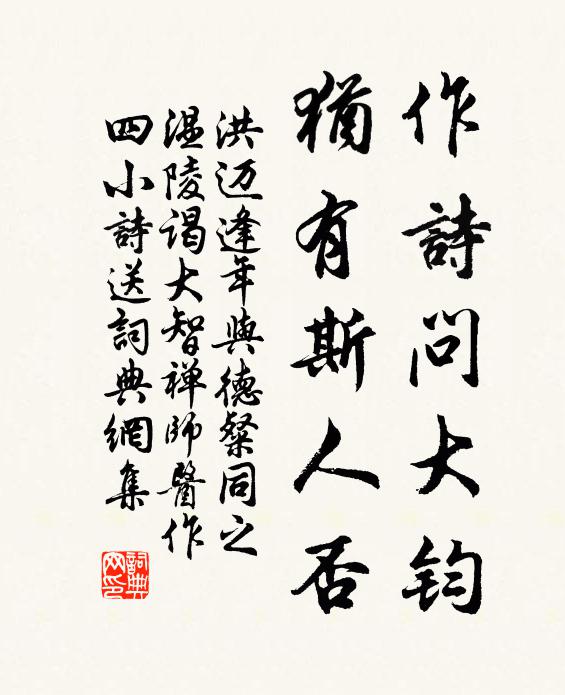 作詩問大鈞
猶有斯人否
洪迈逢年與德粲同之
溫陵谒大智禅師醫作
四小詩送詞典網集
詞典
网印